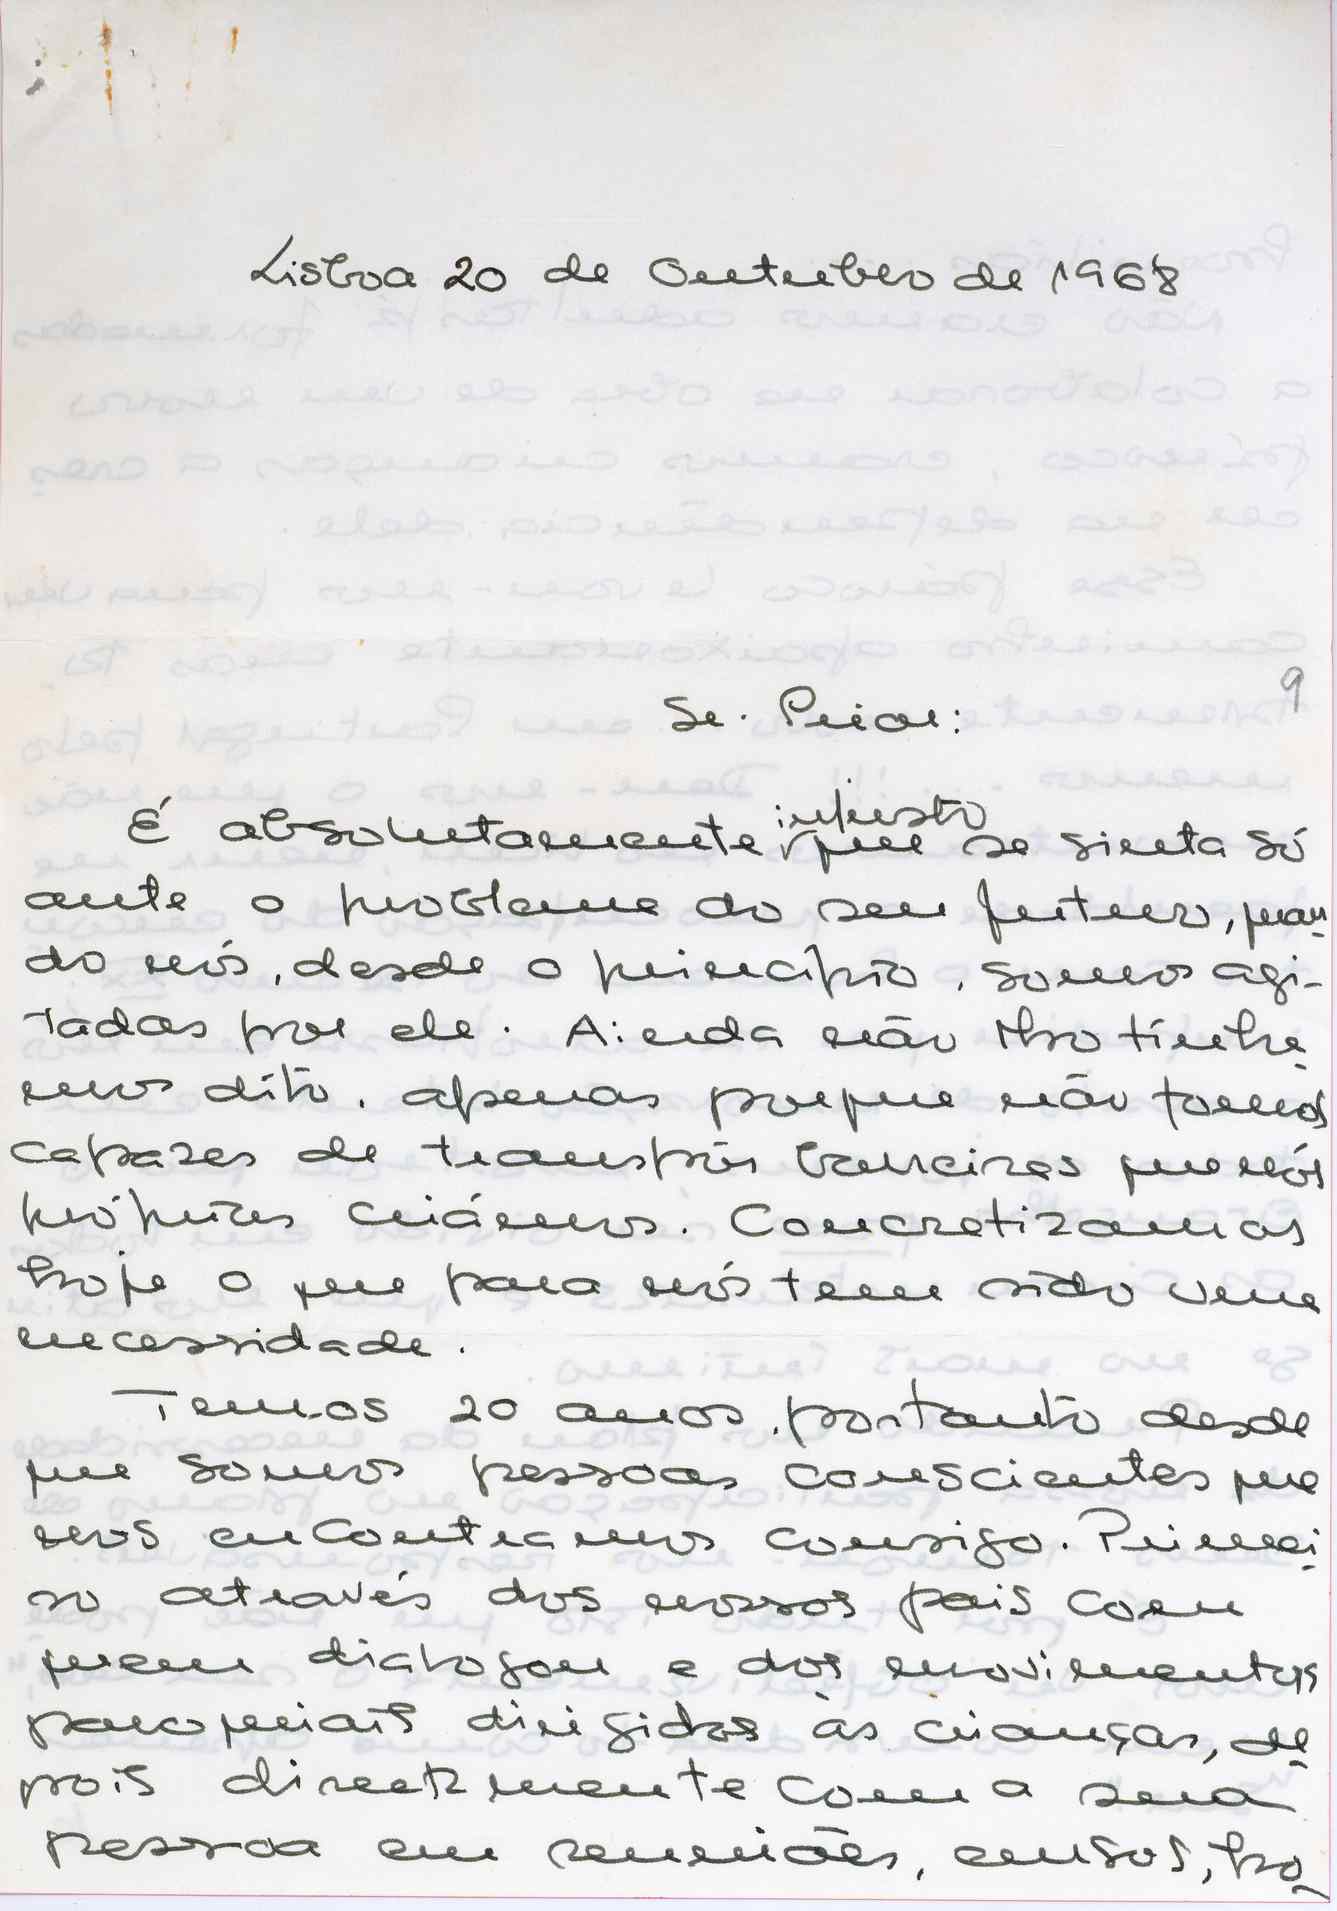 Lisboa 20 de Outubro de 1968
9
Sr. Prior:
É absolutamente injusto que se sinta só
ante o problema do seu futuro, quan-
do nós, desde o princípio, somos agi-
tadas por ele. Ainda não lho tínha-
mos dito, apenas porque não fomos
capazes de transpôr barreiras que nós
próprias criámos. Concretizamos
hoje o que para nós tem sido uma
necessidade.
Temos 20 anos, portanto desde
que somos pessoas conscientes que
nos encontramos consigo. Primei-
ro através dos nossos pais com
quem dialogou e dos movimentos
paroquiais dirigidos às crianças, de-
pois directamente com a sua
pessoa em reuniões, cursos, ho-